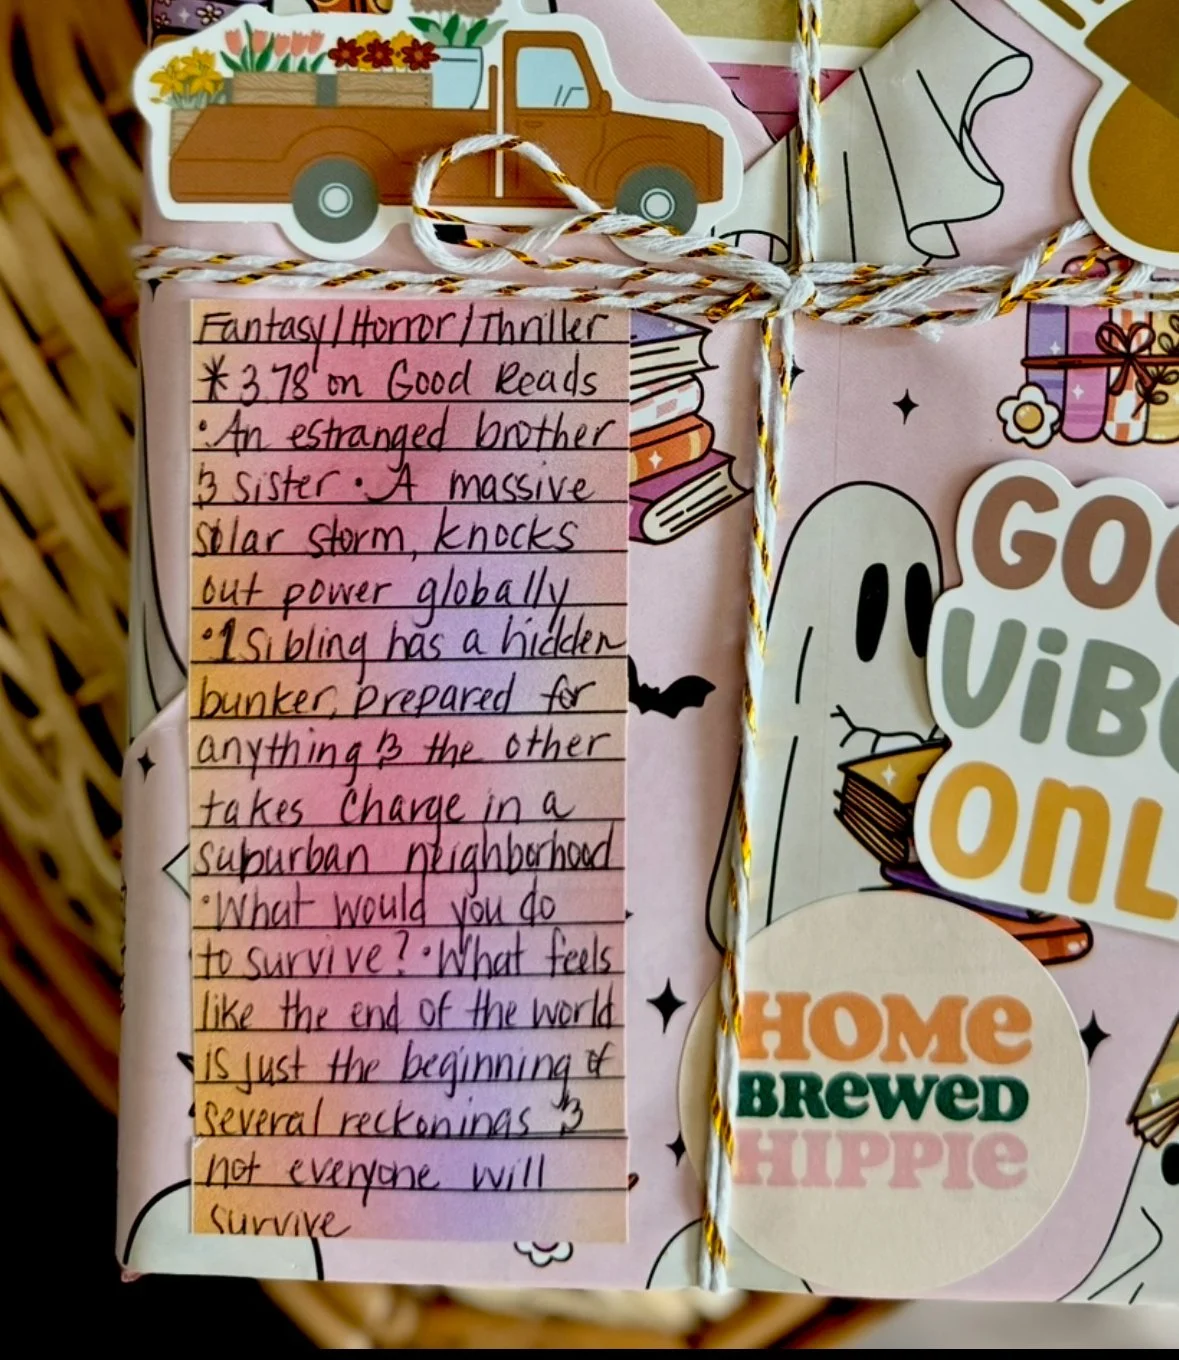 Fantasy/Horror/Thriller
* 3.78 on Good Reads
•An estranged brother
& sister • A massive
solar storm, knocks
out power globally
•1 Sibling has a hidden
bunker, prepared for
anything & the other
takes charge in a
suburban neighborhood
•What would you do
to survive? •What feels
like the end of the world
is just the beginning of
several reckonings &
not everyone will
survive
GOO
ViBE
ONL
HOME
BREWED
HIPPIE